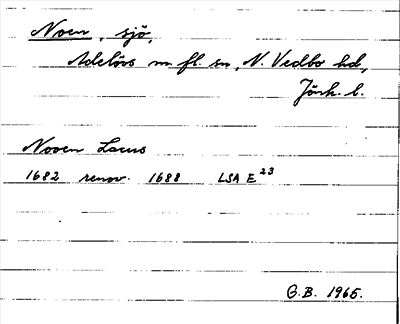 Noen, sjö,
Adelövs m fl. sn, N. Vedbo hd,
Jönk. l.
Nooen Lacus
1682 renov. 1688 LSA E 23
G.B. 1965.